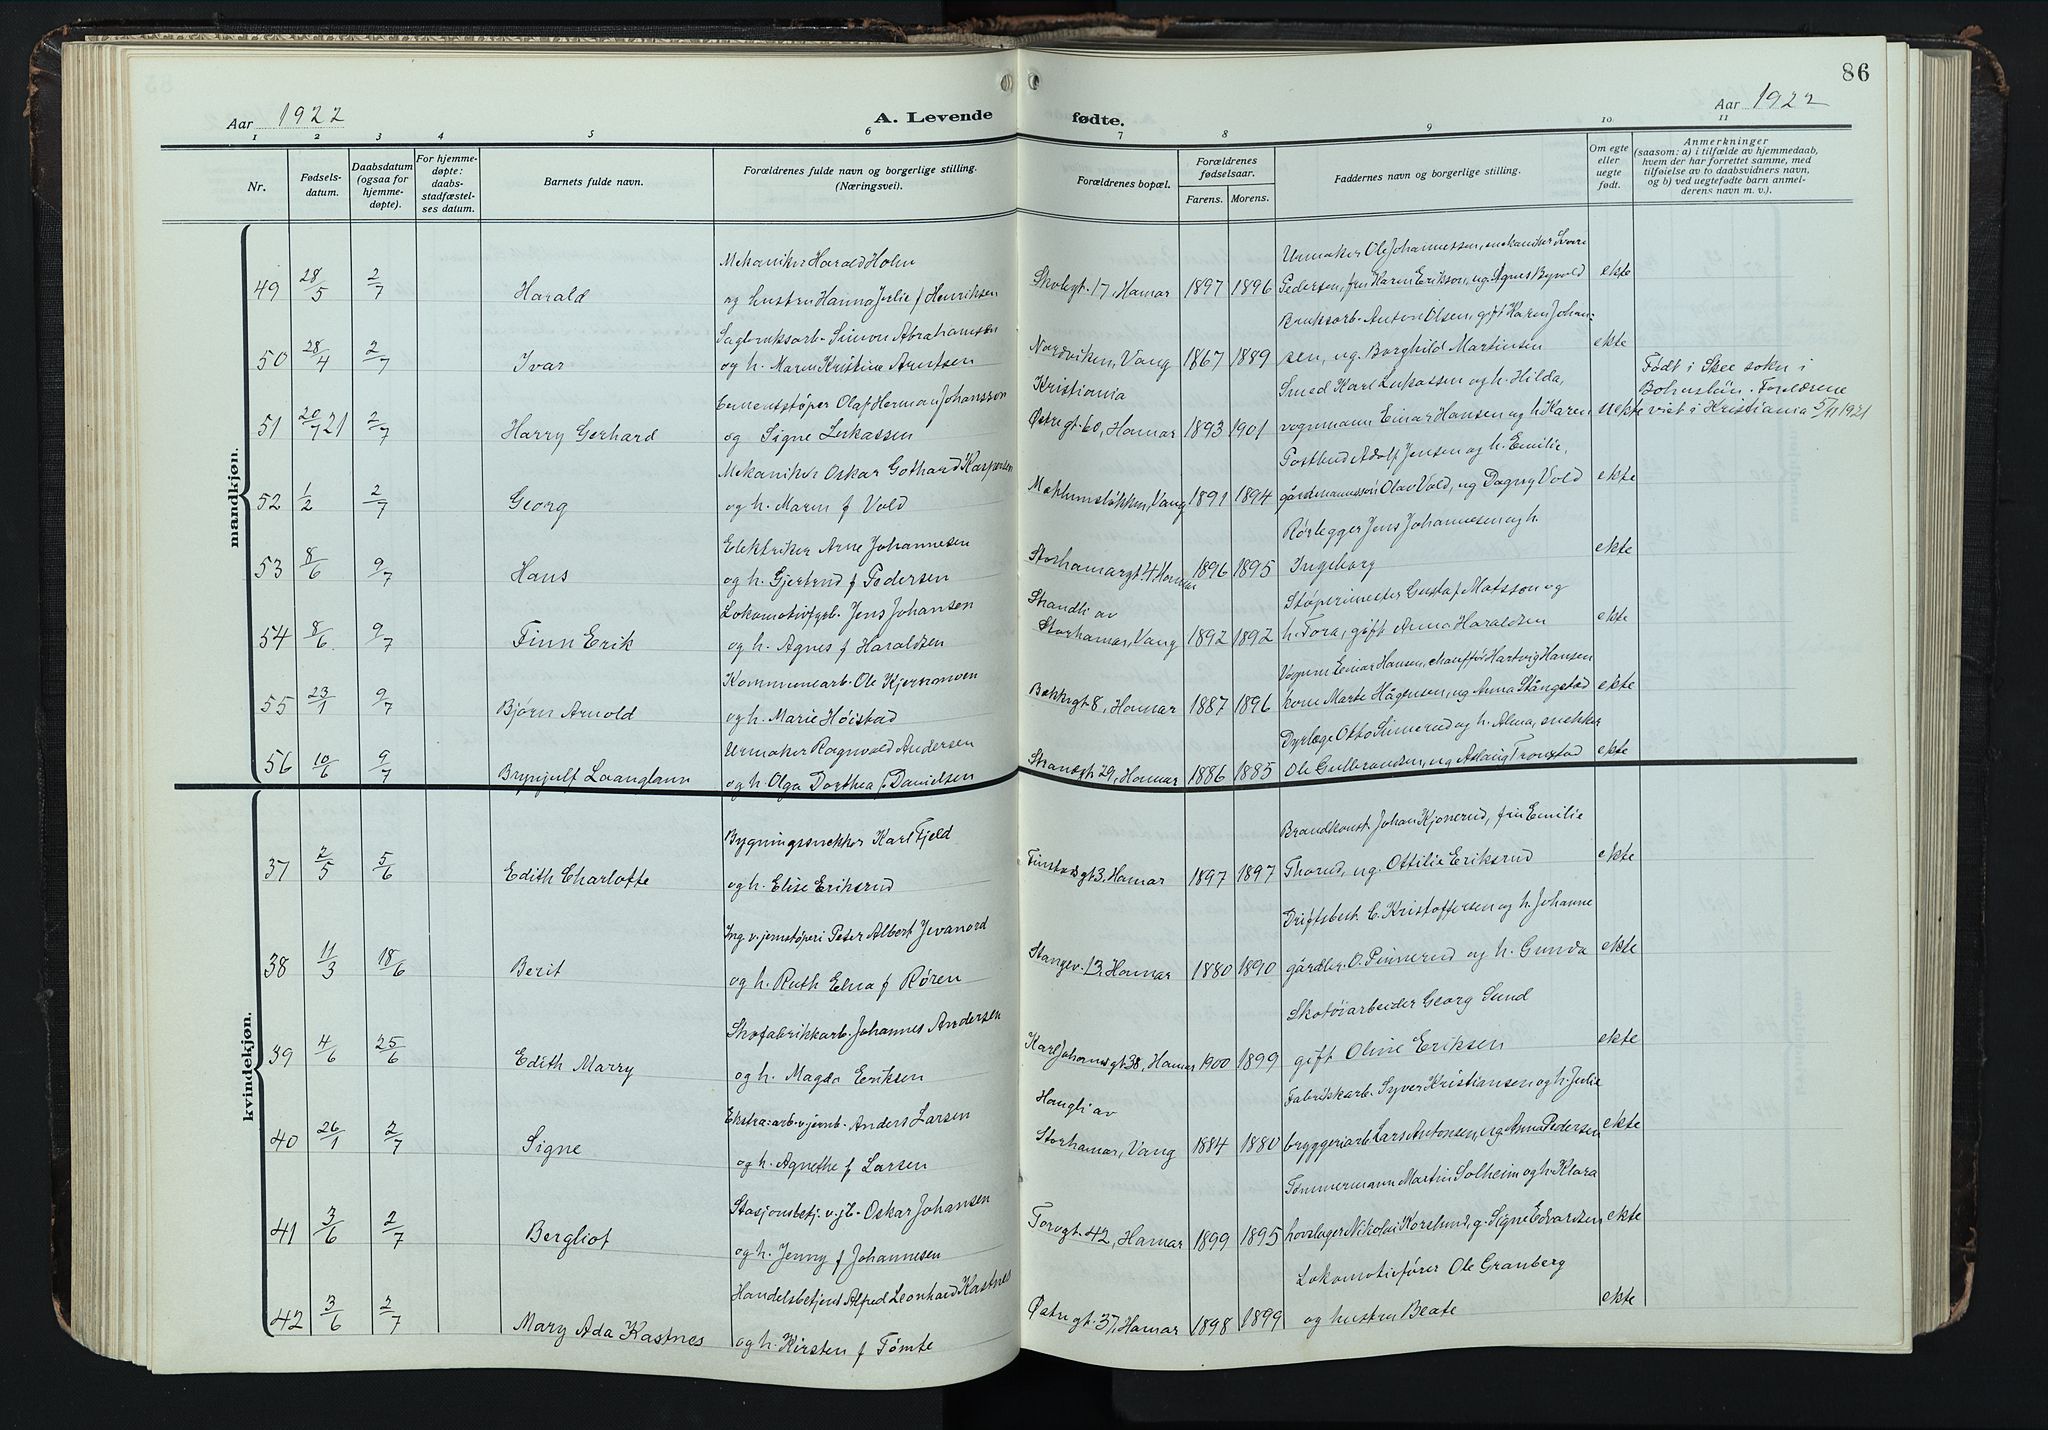 86
Aar 1922
A. Levende fødte.
Aar 1922
1 2 3 4 5 6 7 8 9 10 11
Nr.
Fødsels-
datum.
Daabsdatum
(ogsaa for
hjemme-
døpte).
For hjemme-
døpte:
daabs-
stadfæstel-
ses datum.
Barnets fulde navn.
Forældrenes fulde navn og borgerlige stilling.
(Næringsvei).
Forældrenes bopæl.
Forældrenes
fødselsaar.
Farens. Morens.
Faddernes navn og borgerlige stilling.
Om egte
eller
uegte
født.
Anmerkninger
(saasom: a) i tilfælde av hjemmedaab,
hvem der har forrettet samme, med
tilføielse av to daabsvidners navn,
og b) ved uegtefødte barn anmel-
derens navn m. v.).
mandkjøn.
49 28/5 2/7 Harald
Mekaniker Harald Holm
og hustru Hanna Julie f Henriksen
Skolegt. 17, Hamar 1897 1896
Urmaker Ole Johannessen, mekaniker Sverre
Pedersen, fru Karen Erikson, ug. Agnes Byvold
ekte
50 28/4 2/7 Ivar
Sagbruksarb. Simon Abrahamsen
og h. Maren Kristine Arntsen
Nordviken, Vang 1867 1889
Bruksarb. Anton Olsen, gift Karen Johan-
sen, ug. Borghild Martinsen
ekte
51 20/7 21 2/7 Harry Gerhard
Cementstøper Olaf Herman Johansson
og Signe Lukassen
Kristiania
Østregt. 60, Hamar 1893 1901
Smed Karl Lukassen og h. Hilda,
vognmann Einar Hansen og h. Karen
uekte
Født i Skee sokn i
Bohuslän. Foreldrene
viet i Kristiania 5/11 1921
52 1/2 2/7 Georg
Mekaniker Oskar Gothard Kaspersen
og h. Maren f Vold
Meklumsløkken, Vang 1891 1894
Postbud Adolf Jensen og h. Emilie,
gårdmannssøn Olav Vold, ug Dagny Vold
ekte
53 8/6 9/7 Hans
Elektriker Arne Johannesen
og h. Gjertrud f Pedersen
Storhamargt. 4, Hamar 1896 1895
Rørlegger Jens Johannesen og h.
Ingeborg
ekte
54 8/6 9/7 Finn Erik
Lokomotivfyrb. Jens Johansen
og h. Agnes f Haraldsen
Strandli av
Storhamar, Vang 1892 1892
Støperimester Gustaf Matsson og
h. Tora, gift Anna Haraldsen
ekte
55 23/1 9/7 Bjørn Arnold
Kommunearb. Ole Kjernmoen
og h. Marie Høistad
Bekkegt 8, Hamar 1887 1896
Vognm Einar Hansen, chauffør Hartvig Hansen
kone Marte Hågensen, ug Anna Stångstad
ekte
56 10/6 9/7 Brynjulf Laanglann
Urmaker Ragnvald Andersen
og h. Olga Dorthea f. Danielsen
Strandgt 29, Hamar 1886 1885
Dyrlæge Otto Sinnerud og h. Alma, snekker
Ole Gulbrandsen, ug Aslaug Tronstad
ekte
kvindekjøn.
37 2/5 5/6 Edith Charlotte
Bygningssnekker Karl Fjeld
og h. Elise Eriksrud
Finstadgt 3, Hamar 1897 1897
Brandkonst. Johan Kjonerud, fru Emilie
Thorud, ug. Ottilie Eriksrud
ekte
38 11/3 18/6 Berit
Ing. v. jernstøperi Peter Albert Jevanord
og h. Ruth Elna f Røren
Stangev. 13, Hamar 1880 1890
Driftsbest. C. Kristoffersen og h. Johanne
gårdbr. O. Pinnerud og h. Gunda
ekte
39 4/6 25/6 Edith Marry
Skofabrikkarb. Johannes Andersen
og h. Magda Eriksen
Karl Johansgt 38, Hamar 1900 1899
Skotøiarbeider Georg Sund
gift Oline Eriksen
ekte
40 26/1 2/7 Signe
Ekstraarb. v jernb. Anders Larsen
og h. Agnethe f Larsen
Haugli av
Storhamar, Vang 1884 1880
Fabrikkarb. Syver Kristiansen og h. Julie
bryggeriarb Lars Antonsen, ug Anna Pedersen
ekte
41 3/6 2/7 Bergliot
Stasjonsbetj. v. jb. Oskar Johansen
og h. Jenny f Johannesen
Torvgt. 42, Hamar 1899 1895
Tømmermann Martin Solheim og h. Klara
hovslager Nikolai Korslund, g. Signe Edvardsen
ekte
42 3/6 2/7 Mary Ada Kastnes
Handelsbetjent Alfred Leonhard Kastnes
og h. Kirsten f Tømte
Østregt. 37, Hamar 1898 1899
Lokomotivfører Ole Granberg
og hustru Beate
ekte